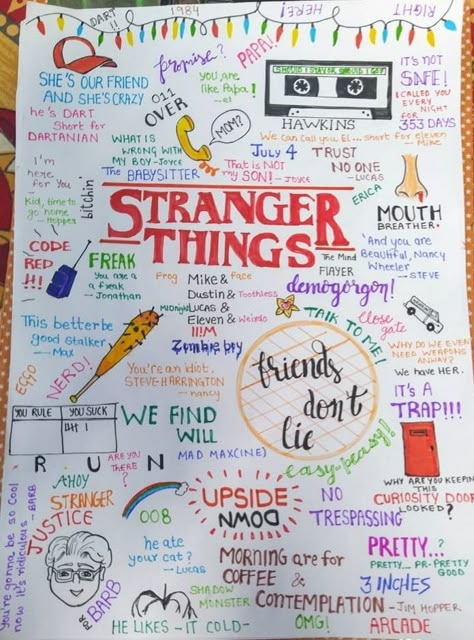 DART !!
1984
RIGHT
HERE!
SHE'S OUR FRIEND
AND SHE'S CRAZY
promise?
PAPA!
you are
like Papa!
-el
SHOULD I STAY OR SHOULD I GO?
HAWKINS
it's NOT
SAFE!
I CALLED YOU
EVERY
NIGHT
FOR
353 DAYS
he's DART
Short for
DARTANIAN
011
OVER
MOM?
WHAT IS
WRONG WITH
MY BOY -JOYCE
We can call you El... short for eleven
- Mike
JULY 4
TRUST
NO ONE
- LUCAS
That is NOT
my SON! - JOYCE
The BABYSITTER
I'm
here
for you
bitchin'
Kid, time to
go home
- Hopper
ERICA
MOUTH
BREATHER.
STRANGER
THINGS
The Mind
FlAYER
"And you are
Beautiful, Nancy
Wheeler
- STEVE
CODE
RED
!!!
FREAK
You are a
a freak
- Jonathan
Frog
face
Mike &
Dustin &
Toothless
MIDNight
Lucas &
Eleven &
Weirdo
!!!M
Zombie boy
demogorgon!
TALK TO ME!
Close
gate
This better be
good stalker
- Max
EGGO
NERD!
You're an idiot,
STEVE HARRINGTON
- nancy
friends
don't
lie
WHY DO WE EVEN
NEED WEAPONS
ANWAY?
We have HER.
IT'S A
TRAP!!!
YOU RULE
YOU SUCK
WE FIND
WILL
MAD MAX(INE)
easy-peasy!!
R U N
ARE YOU
THERE
?
AHOY
STRANGER
JUSTICE
FOR
BARB
008
UPSIDE
DOWN
NO
TRESPASSING
WHY ARE YOU KEEPIN
THIS
CURIOSITY DOOR
LOOKED?
You're gonna be so cool
now it's ridiculous - BARB
he ate
your cat?
- Lucas
SHADOW
MONSTER
HE LIKES -IT COLD-
MORNING are for
COFFEE &
CONTEMPLATION
- JIM HOPPER
PRETTY..?
PRETTY... PR-PRETTY
GOOD
3 INCHES
OMG!
ARCADE